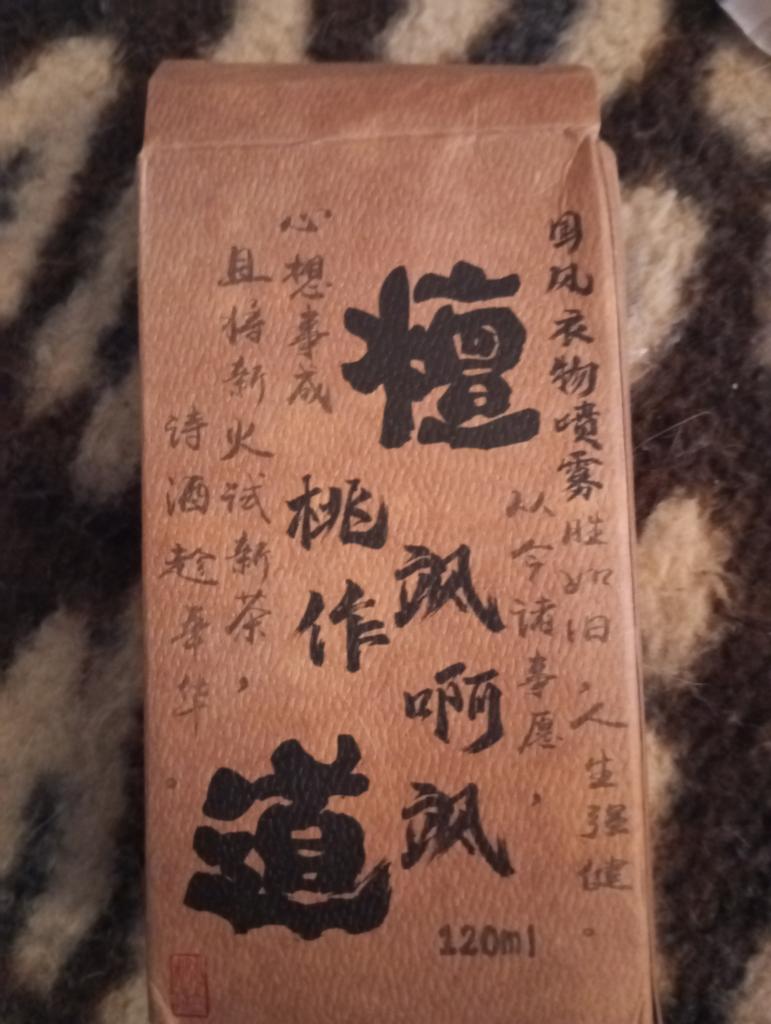 国风衣物喷雾
胜如旧,
人生强健。
从今诸事愿,
檀
飒啊飒
桃作
道
心想事成
且将新火试新茶,
诗酒趁年华。
120ml